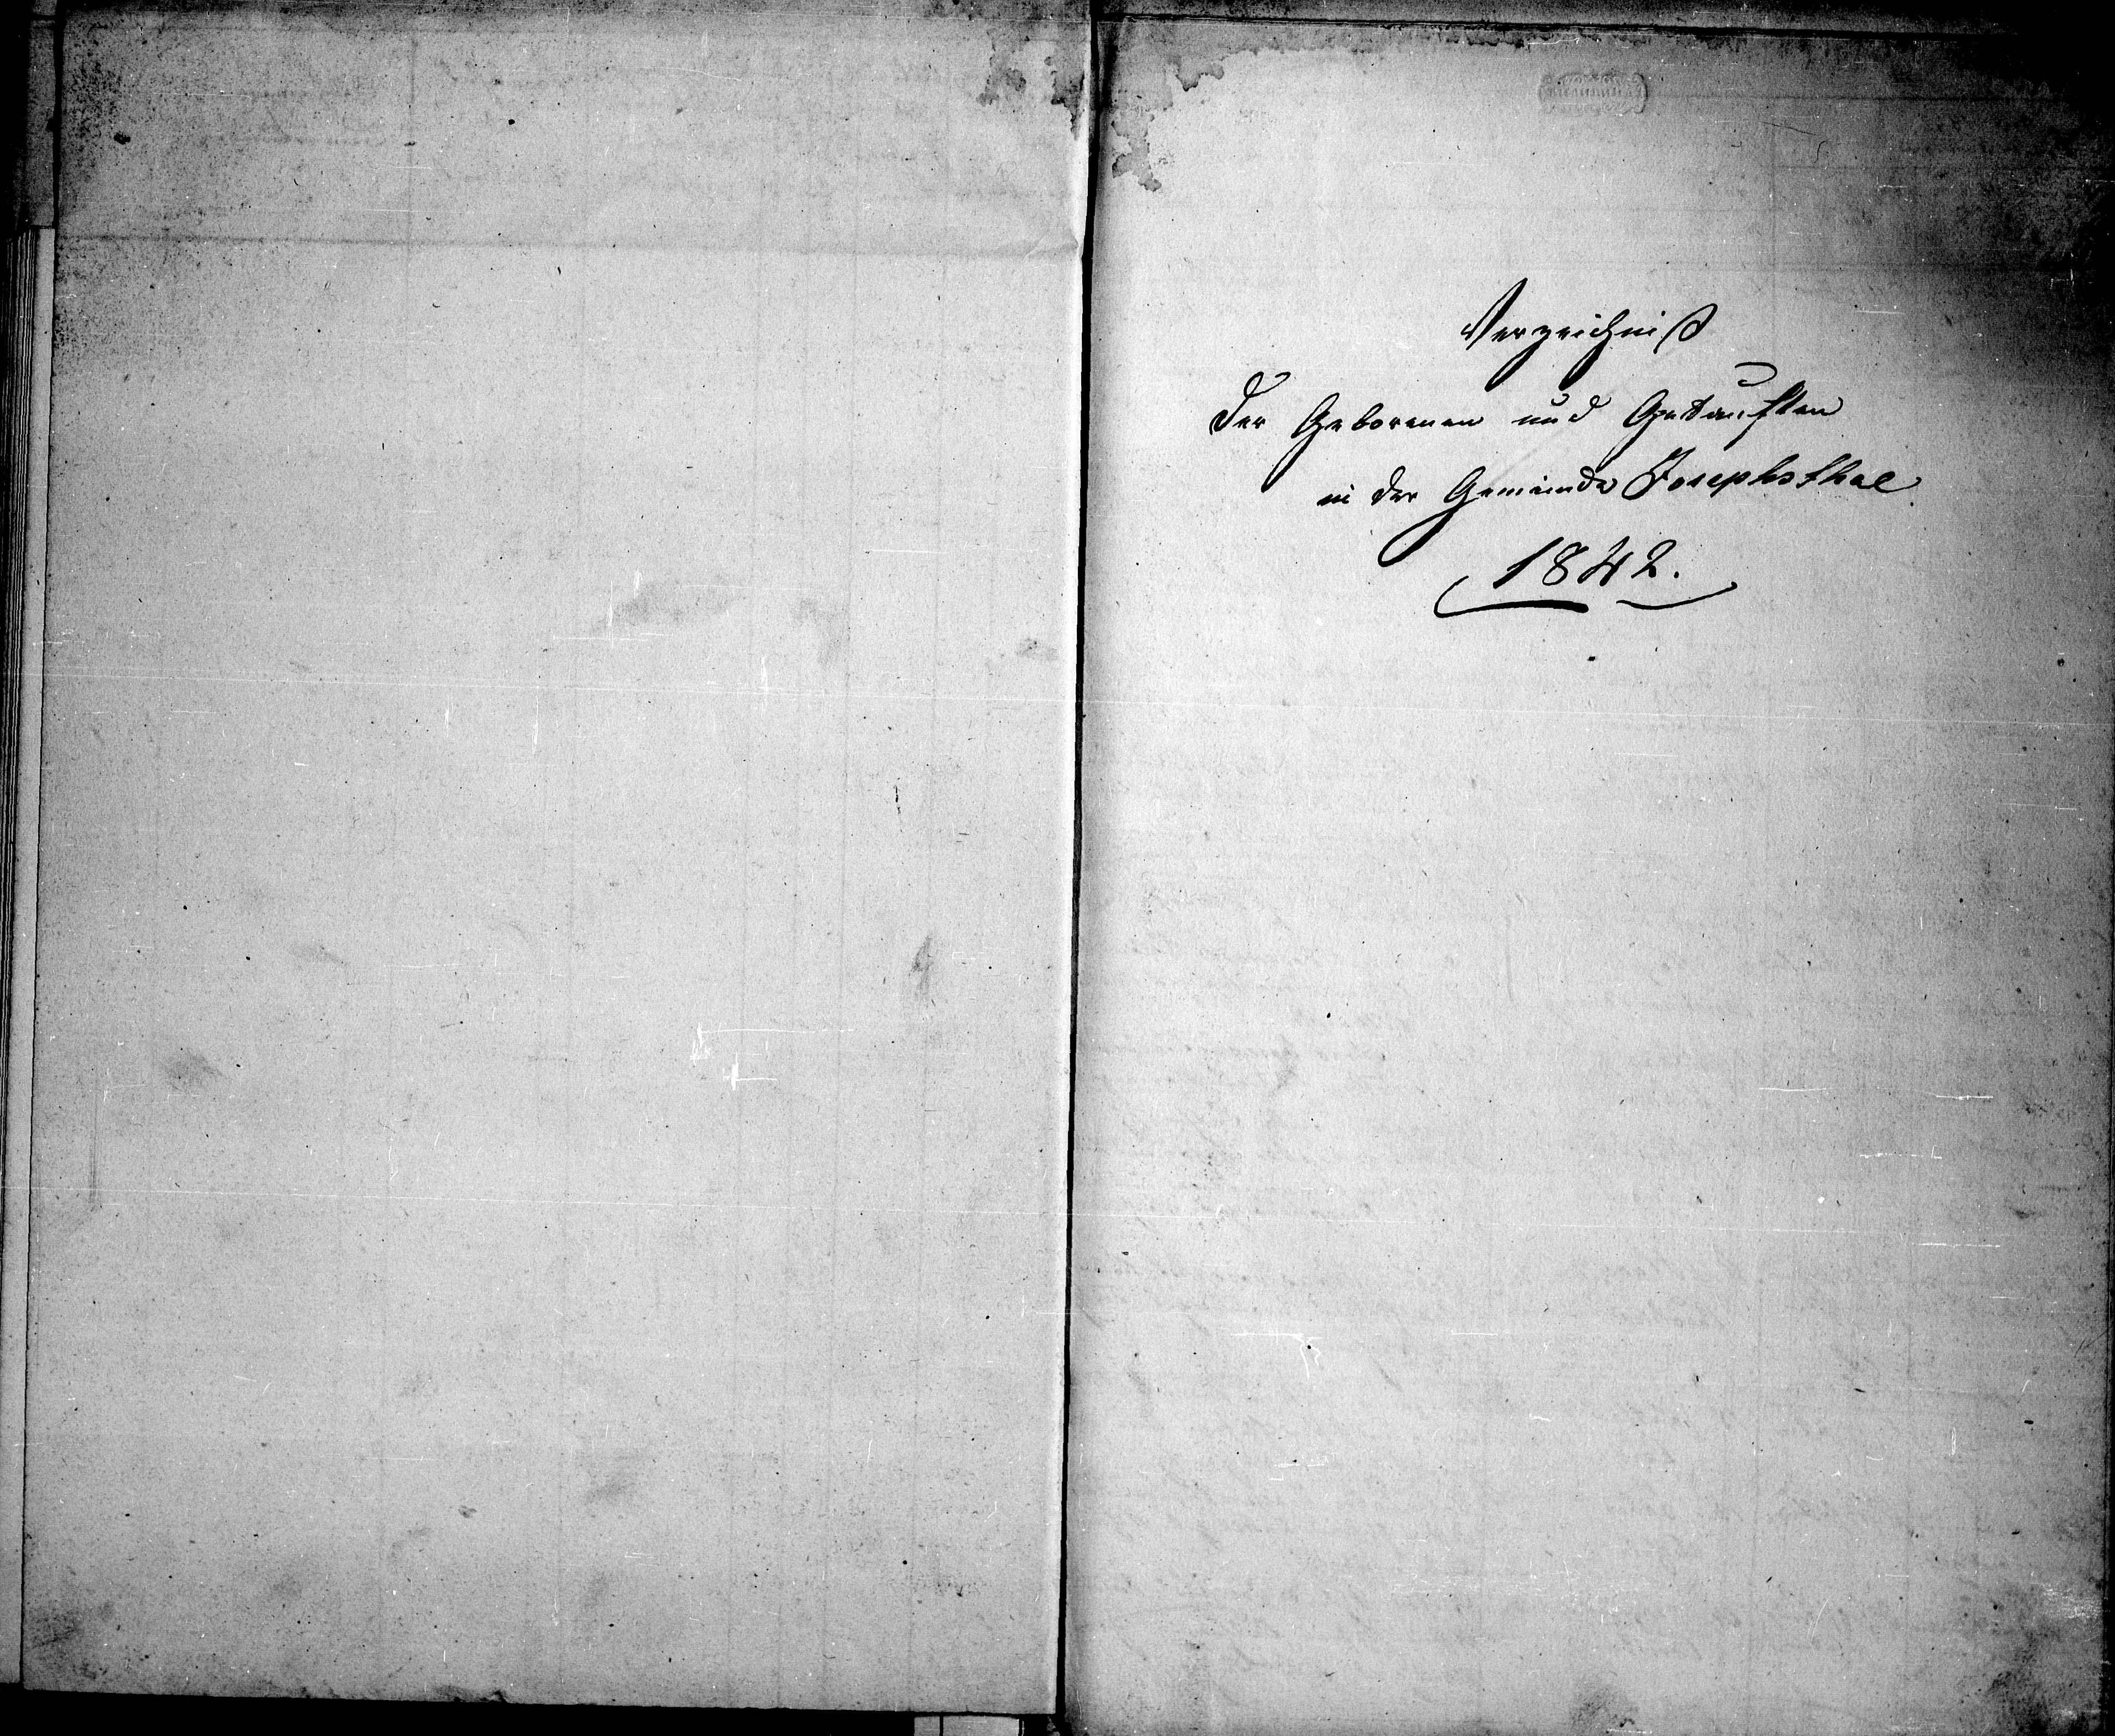 Verzeichniß
der Geborenen und Getauften
in der Gemeinde Josephsthal
1842.